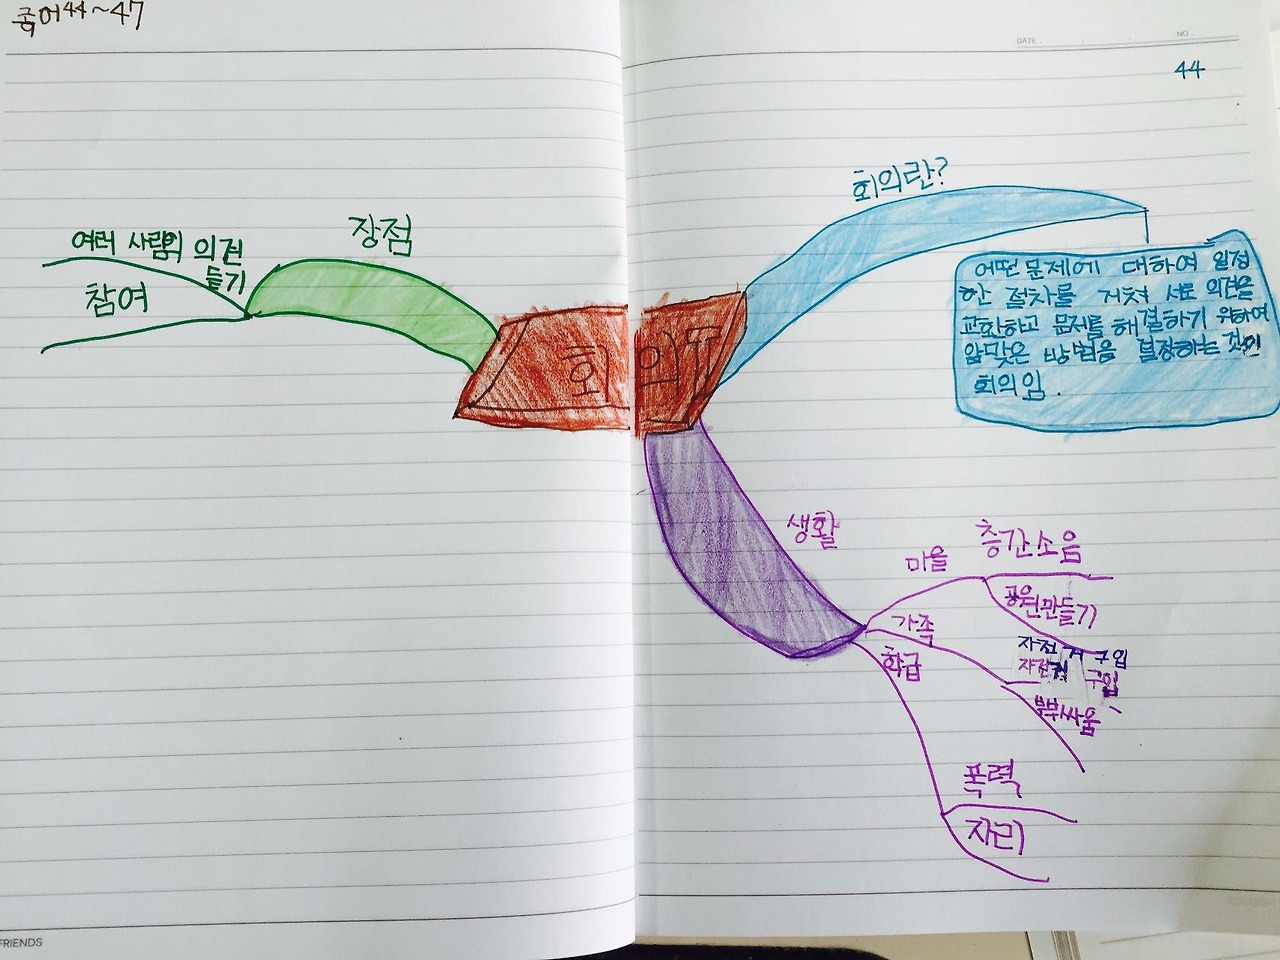 국어44~47
DATE .
NO .
44
회의란?
어떤 문제에 대하여 일정
한 절차를 거쳐 서로 의견을
교환하고 문제를 해결하기 위하여
알맞은 방법을 결정하는 것이
회의임.
장점
여러 사람의 의견
듣기
참여
회의
생활
마을
층간소음
공원만들기
가족
자전거 구입
자전거 구입
부부싸움
학급
폭력
자리
FRIENDS